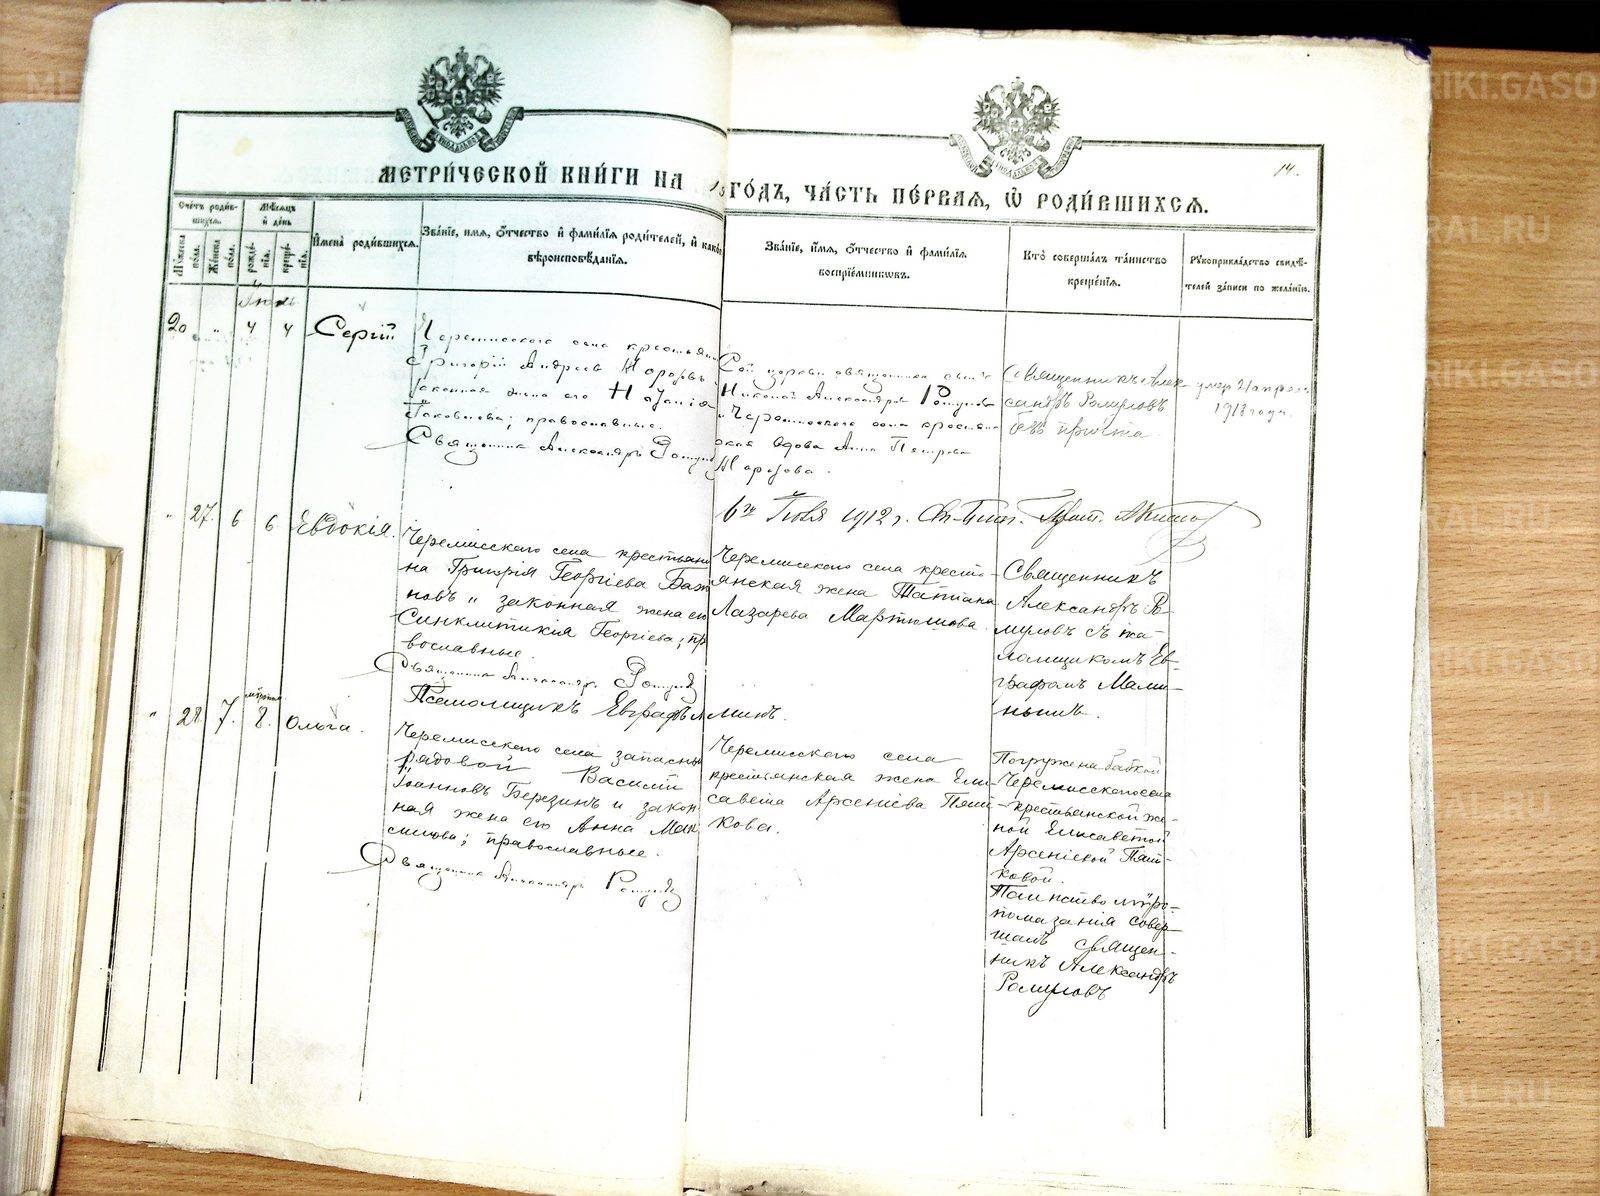 МЕТРИ́ЧЕСКОЙ КНИ́ГИ НА ГО́ДЪ, ЧА́СТЬ ПЕ́РВАЯ, Ѽ РОДИ́ВШИХСѦ.
14.
Сче́тъ роди́в-
шихся.
Мѣ́сяцъ
и́ де́нь
Му́жеска по́ла.
Же́нска по́ла.
рожде́нія.
креще́нія.
И́мена̀ роди́вшихся.
Зва́ніе, и́мя, о́тчество и́ фами́лія роди́телей, и́ како́
вѣроисповѣ́данія.
Зва́ніе, и́мя, о́тчество и́ фами́лія
воспріе́мниковъ.
Кто̀ соверша́лъ та́инство
креще́нія.
Рукоприкла́дство свидѣ́-
телей за́писи по жела́нію.
Іюль
20 " 4 4 Сергій
Черемисскаго села крестьяни
Григорій Андреевъ Морозовъ
законная жена его Наталія
Іаковлева; православные.
Священникъ Александръ Ромулов
Той церкви священника сынъ
Николай Александровъ Ромуловъ
и Черемисскаго села крестьян
ская вдова Анна Петрова
Морозова.
Священникъ Алек
сандръ Ромуловъ
безъ причта
умер 21 апреля
1913 года.
6го Іюля 1912 г.
" 27. 6 6 Евдокія.
Черемисскаго села крестьяни
на Григорія Георгіева Баж
новъ " законная жена его
Синклитикія Георгіева; пр
вославные.
Священникъ Александръ Ромулов
Псаломщикъ Евграфъ М
Черемисскаго села кресть-
янская жена Татіана
Лазарева Мартюшова.
Священникъ
Александръ Ро
муловъ съ пса-
ломщикомъ Ев-
графомъ Мами-
нымъ.
" 28. 7. 8. Ольга.
Черемисскаго села запасны
рядовой Василій
Іоанновъ Березинъ и закон
ная жена его Анна Мак
симова; православные.
Священникъ Александръ Ромулов
Черемисскаго села
крестьянская жена Ели
савета Арсеніева Пят
кова.
Погружена бабкой
Черемисскаго села
крестьянской же-
ной Елисаветой
Арсеніевой Пят-
ковой.
Таинство мѵро-
помазанія совер-
шалъ священ-
никъ Александръ
Ромуловъ